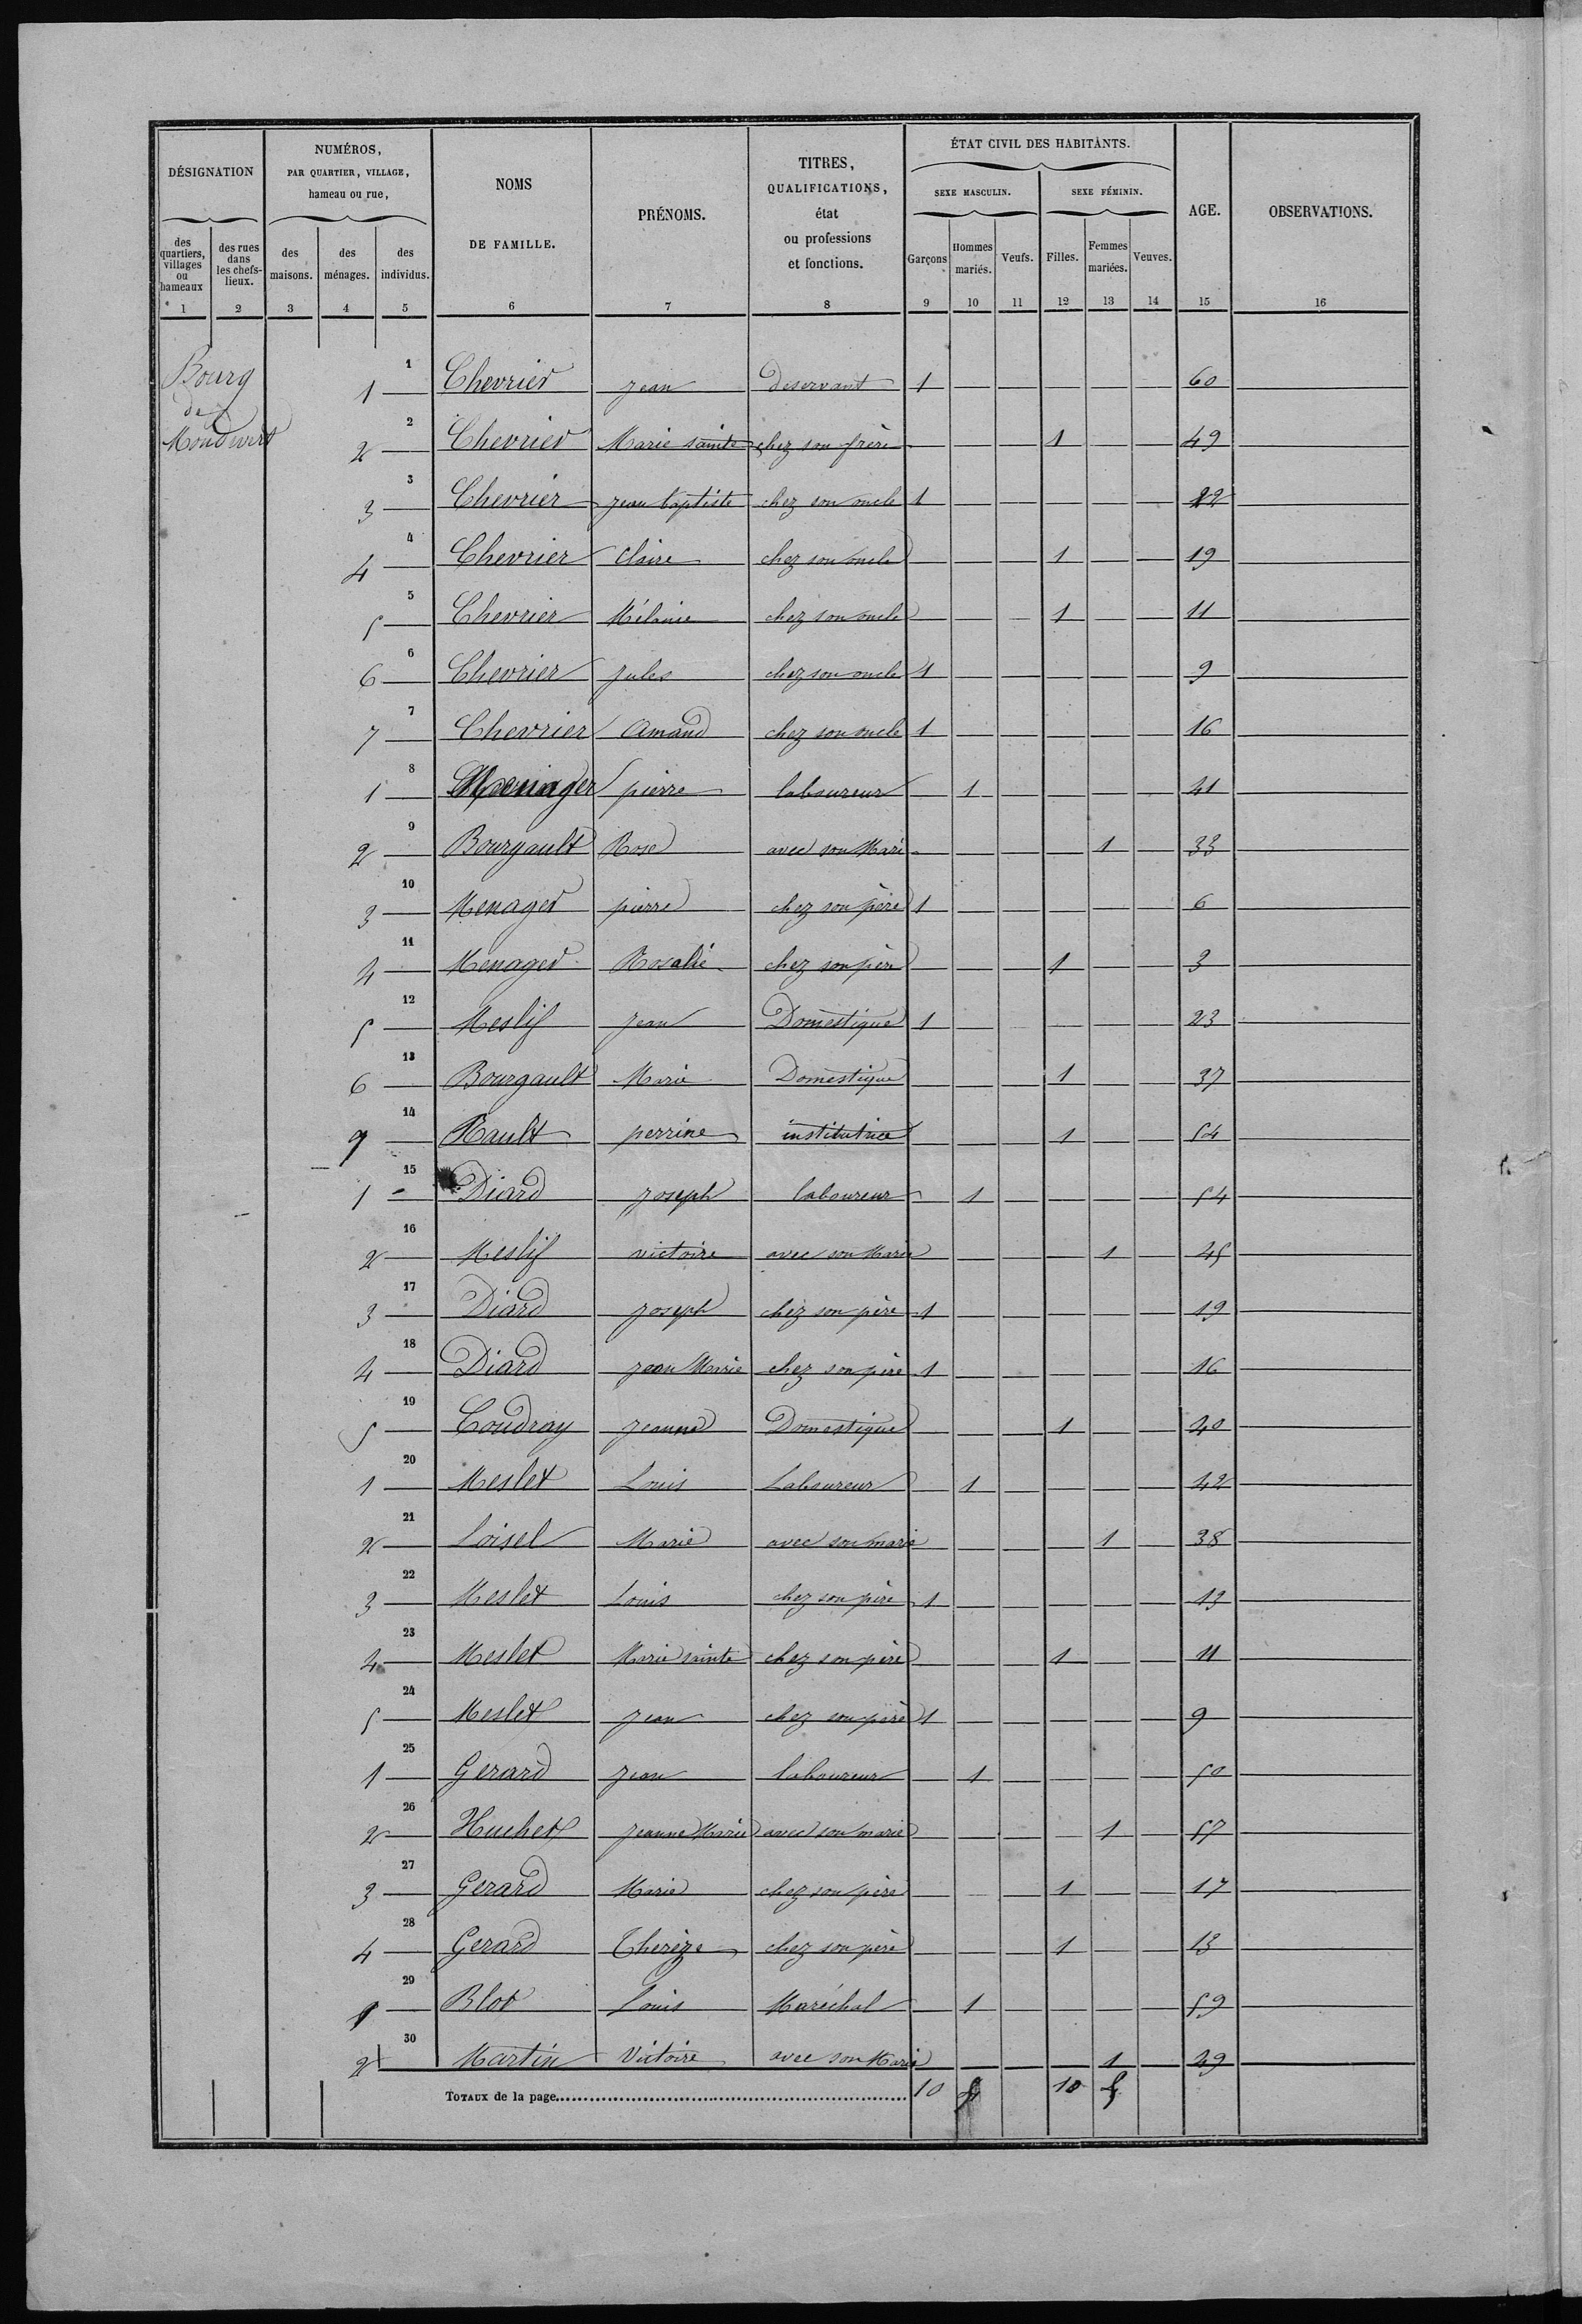 DÉSIGNATION
NUMÉROS,
PAR QUARTIER, VILLAGE,
hameau ou rue,
NOMS
DE FAMILLE.
PRÉNOMS.
TITRES,
QUALIFICATIONS,
état
ou professions
et fonctions.
ÉTAT CIVIL DES HABITANTS.
SEXE MASCULIN. SEXE FÉMININ.
AGE.
OBSERVATIONS.
des quartiers, villages ou hameaux
des rues dans les chefs-lieux.
des maisons.
des ménages.
des individus.
Garçons
Hommes mariés.
Veufs.
Filles.
Femmes mariées.
Veuves.
1 2 3 4 5 6 7 8 9 10 11 12 13 14 15 16
Bourg
de
1 1 Chevrier jean deservant 1 60
2 2 Chevrier Marie sainte chez son frère 1 49
3 3 Chevrier jean baptiste chez son oncle 1 22
4 4 Chevrier Claire chez son oncle 1 19
5 5 Chevrier Mélanie chez son oncle 1 11
6 6 Chevrier jules chez son oncle 1 9
7 7 Chevrier Amand chez son oncle 1 16
1 8 Menager pierre laboureur 1 41
2 9 Bourgault Rose avec son Mari 1 33
3 10 Menager pierre chez son père 1 6
4 11 Menager Rosalie chez son père 1 3
5 12 Meslif jean Domestique 1 23
6 13 Bourgault Marie Domestique 1 37
9 14 Rault perrine institutrice 1 54
1 15 Diard joseph laboureur 1 54
2 16 Meslif victoire avec son Marie 1 45
3 17 Diard joseph chez son père 1 19
4 18 Diard jean Marie chez son père 1 16
5 19 Coudray jeanne Domestique 1 40
1 20 Meslet Louis Laboureur 1 42
2 21 Loisel Marie avec son marie 1 38
3 22 Meslet Louis chez son père 1 13
4 23 Meslet Marie sainte chez son père 1 11
5 24 Meslet jean chez son père 1 9
1 25 Gerard jean laboureur 1 50
2 26 Huchet jeanne Marie avec son marie 1 57
3 27 Gerard Marie chez son père 1 17
4 28 Gerard Therèze chez son père 1 13
1 29 Blot Louis Maréchal 1 59
2 30 Martin Victoire avec son Marie 1 49
TOTAUX de la page 10 5 10 5